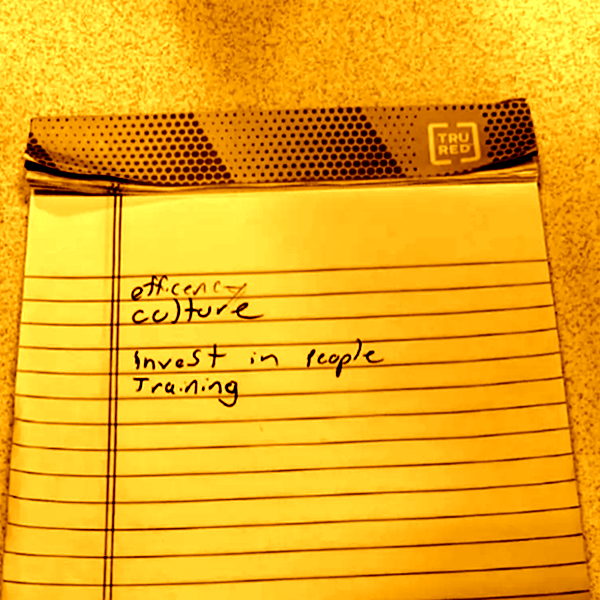 TRU
RED
efficency
culture
Invest in people
Training